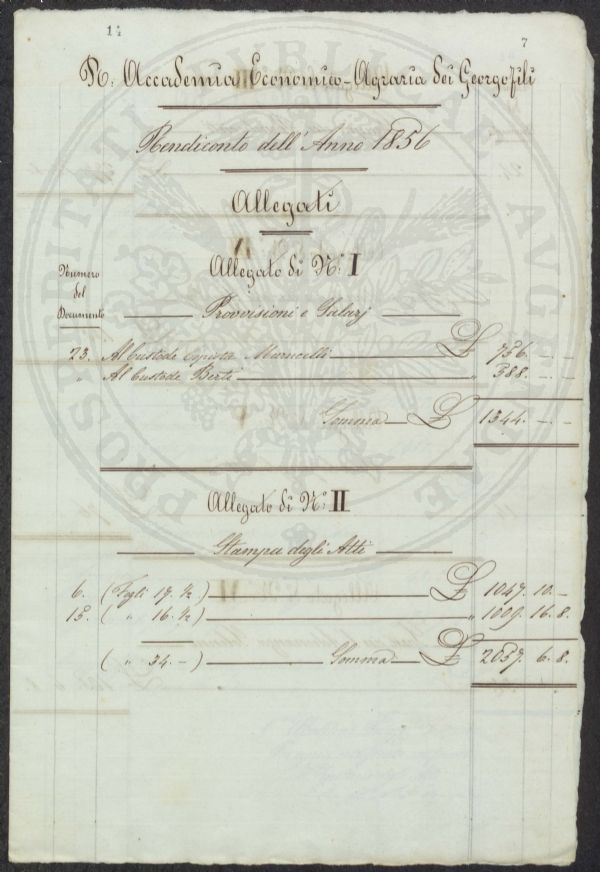 14
7
R: Accademia Economico-Agraria dei Georgofili
Rendiconto dell'Anno 1856
Allegati
Allegato di N.º I
Numero del Documento
Provvisioni e Salarj
23. Al Custode Copista Marucelli £ 756. - -
" Al Custode Berti " 588. - -
Somma £ 1344. - -
Allegato di N.º II
Stampa degli Atti
6. (Fogli 17.½) £ 1047. 10. -
15. ( " 16.½) " 1009. 16. 8.
( " 34. -) Somma £ 2057. 6. 8.
PROSPERITATI PVBLICAE AVGENDAE